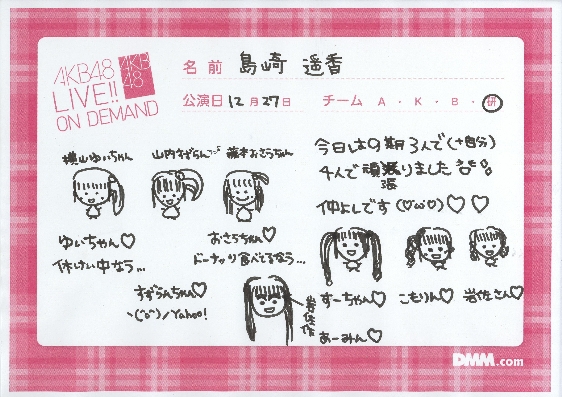 AKB48
LIVE!!
ON DEMAND
AKB
48
名前 島崎 遥香
公演日 12月27日 チーム A・K・B・研
横山ゆいちゃん
山内すずらんちゃん
藤本おさらちゃん
今日は9期3人で(+自分)
4人で頑張りました
張
仲よしです(♡ω♡)♡♡
ゆいちゃん♡
休けい中なう…
おさらちゃん♡
ドーナッツ食べてるなう…
すずらんちゃん♡
ヽ(^o^)ノYahoo!
すーちゃん♡
こもりん♡
岩佐さん♡
あーみん♡
DMM.com